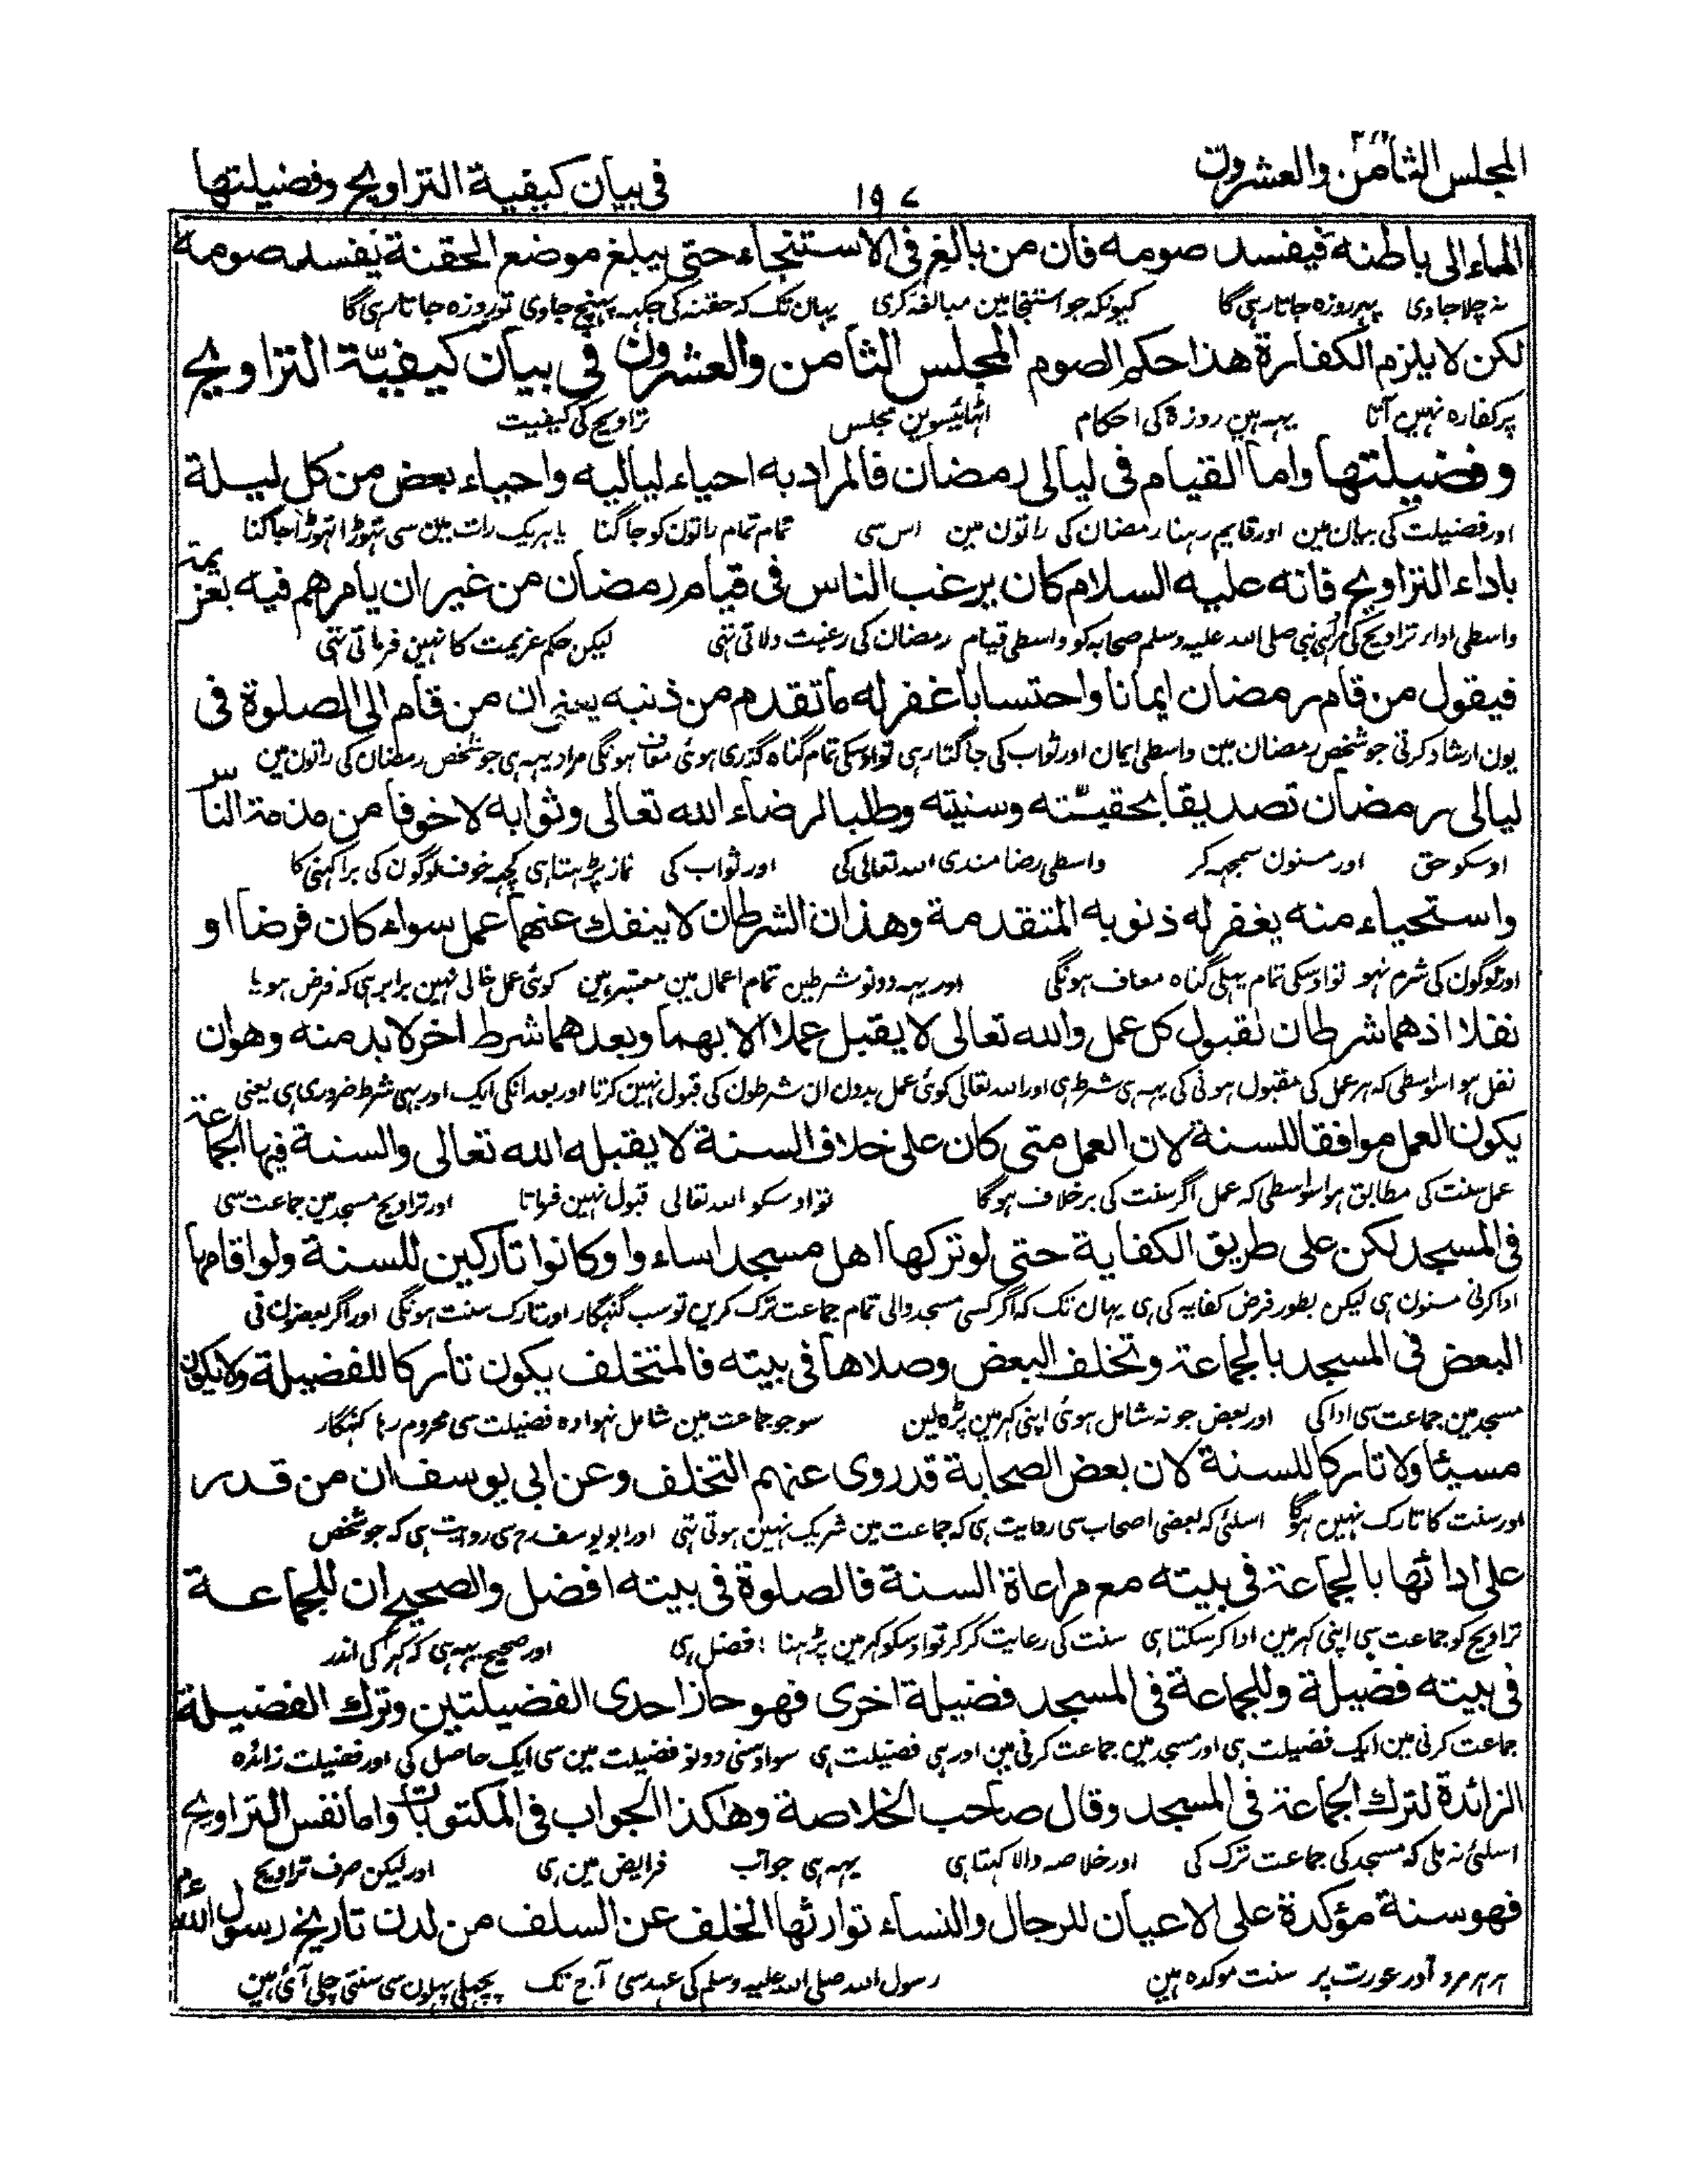 المجلس الثامن والعشرون
١٩٧
فى بيان كيفية التراويح وفضيلتها
الماء الى باطنه فيفسد صومه فان من بالغ فى الاستنجاء حتى يبلغ موضع الحقنة يفسد صومه
نہ چلا جاوی پہر روزہ جاتا رہی گا کیونکہ جو استنجا مین مبالغہ کری یہان تک کہ حقنہ کی جگہہ پہنچ جاوی تو روزہ جاتا رہی گا
لكن لا يلزم الكفارة هذا حكم الصوم المجلس الثامن والعشرون فى بيان كيفيّة التراويح
پر کفارہ نہین آتا یہہ ہین روزہ کی احکام اٹہائیسوین مجلس تراویح کی کیفیت
وفضيلتها واما القيام فى ليالى رمضان فالمراد به احياء لياليه واحياء بعض من كل ليلة
اور فضیلت کی بیان مین اور قایم رہنا رمضان کی راتون مین اس سی تمام تمام راتون کو جاگنا یا ہر یک رات مین سی تہوڑا تہوڑا جاگنا
باداء التراويح فانه عليه السلام كان يرغب الناس فى قيام رمضان من غير ان يامرهم فيه بعزيمة
واسطی ادای تراویح کی نبی صلی اللہ علیہ وسلم صحابہ کو واسطی قیام رمضان کی رغبت دلاتی تہی لیکن حکم عزیمت کا نہین فرماتی تہی
فيقول من قام رمضان ايمانا واحتسابا غفر له ما تقدم من ذنبه يعنى ان من قام الى الصلوة فى
یون ارشاد کرتی جو شخص رمضان مین واسطی ایمان اور ثواب کی جاگتا رہی تو اوسکی تمام گناہ گذری ہوئی معاف ہونگی مراد یہہ ہی جو شخص رمضان کی راتون مین
ليالى رمضان تصديقا بحقيّته وسنيته وطلبا لرضاء الله تعالى وثوابه لا خوفا من مذمة الناس
اوسکو حق اور مسنون سمجہہ کر واسطی رضامندی اللہ تعالی کی اور ثواب کی نماز پڑہتا ہی کچہہ خوف لوگون کی برا کہنی کا
واستحياء منه يغفر له ذنوبه المتقدمة وهذان الشرطان لا ينفك عنهما عمل سواء كان فرضا او
اور لوگون کی شرم نہو تو اوسکی تمام پہلی گناہ معاف ہونگی اور یہہ دونو شرطین تمام اعمال مین معتبر ہین کوئی عمل خالی نہین برابر ہی کہ فرض ہو یا
نفلا اذهما شرطان لقبول كل عمل والله تعالى لا يقبل عملا الا بهما وبعدهما شرط اخر لا بد منه وهوان
نفل ہو اسواسطی کہ ہر عمل کی مقبول ہونی کی یہہ ہی شرط ہی اور اللہ تعالی کوئی عمل بدون ان شرطون کی قبول نہین کرتا اور بعد انکی ایک اور بہی شرط ضروری ہی یعنی
يكون العمل موافقا للسنة لان العمل متى كان على خلاف السنة لا يقبله الله تعالى والسنة فيها الجماعة
عمل سنت کی مطابق ہو اسواسطی کہ عمل اگر سنت کی برخلاف ہو گا تو اوسکو اللہ تعالی قبول نہین فرماتا اور تراویح مسجد مین جماعت سی
فى المسجد لكن على طريق الكفاية حتى لو تركها اهل مسجد اساءوا وكانوا تاركين للسنة ولو اقامها
ادا کرنی مسنون ہی لیکن بطور فرض کفایہ کی ہی یہان تک کہ اگر کسی مسجد والی تمام جماعت ترک کرین تو سب گنہگار اور تارک سنت ہونگی اور اگر بعضون نی
البعض فى المسجد بالجماعة وتخلف البعض وصلاها فى بيته فالمتخلف يكون تاركا للفضيلة ولا يكون
مسجد مین جماعت سی ادا کی اور بعض جو نہ شامل ہوئی اپنی گہر مین پڑہ لین سو جو جماعت مین شامل نہوا وہ فضیلت سی محروم رہا گنہگار
مسيئا ولا تاركا للسنة لان بعض الصحابة قد روى عنهم التخلف وعن ابى يوسف ان من قدر
اور سنت کا تارک نہین ہوگا اسلئی کہ بعضی اصحاب سی روایت ہی کہ جماعت مین شریک نہین ہوتی تہی اور ابو یوسف رح سی روایت ہی کہ جو شخص
على ادائها بالجماعة فى بيته مع مراعاة السنة فالصلوة فى بيته افضل والصحيح ان للجماعة
تراویح کو جماعت سی اپنی گہر مین ادا کر سکتا ہی سنت کی رعایت کر کر تو اوسکو گہر مین پڑہنا افضل ہی اور صحیح یہہ ہی کہ گہر کی اندر
فى بيته فضيلة وللجماعة فى المسجد فضيلة اخرى فهو حاز احدى الفضيلتين وترك الفضيلة
جماعت کرنی مین ایک فضیلت ہی اور مسجد مین جماعت کرنی مین اور ہی فضیلت ہی سو اوسنی دونو فضیلت مین سی ایک حاصل کی اور فضیلت زائدہ
الزائدة لترك الجماعة فى المسجد وقال صاحب الخلاصة وهكذا الجواب فى المكتوبات واما نفس التراويح
اسلئی نہ ملی کہ مسجد کی جماعت ترک کی اور خلاصہ والا کہتا ہی یہہ ہی جواب فرایض مین ہی اور لیکن صرف تراویح
فهو سنة مؤكدة على الاعيان للرجال والنساء توارثها الخلف عن السلف من لدن تاريخ رسول الله
ہر مرد اور عورت پر سنت موکدہ ہین رسول اللہ صلی اللہ علیہ وسلم کی عہد سی آج تک پچہلی پہلون سی سنتی چلی آئی ہین